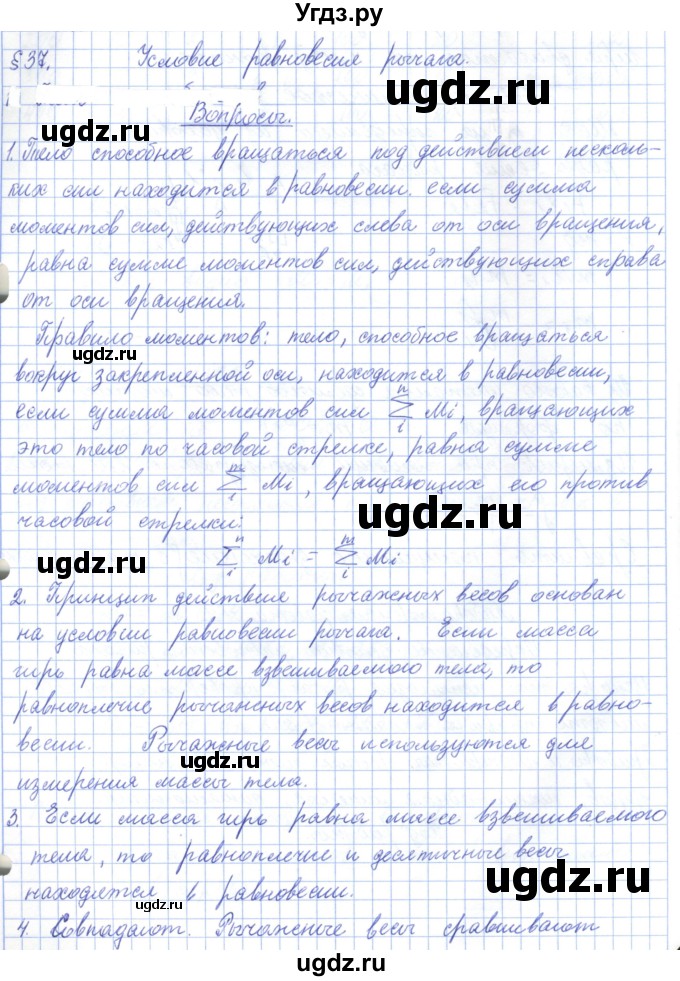 Угдз.ру
§ 37. Условие равновесия рычага.
ugdz.ru Вопросы. ugdz.ru
1. Тело способное вращаться под действием несколь-
ких сил находится в равновесии. если сумма
моментов сил, действующих слева от оси вращения,
равна сумме моментов сил, действующих справа
от оси вращения.
ugdz.ru
Правило моментов: тело, способное вращаться
ugdz.ru
вокруг закрепленной оси, находится в равновесии,
если сумма моментов сил n Σ i Mi, вращающих
это тело по часовой стрелке, равна сумме
моментов сил m Σ i Mi, вращающих его против
ugdz.ru
часовой стрелки:
n Σ i Mi = m Σ i Mi
ugdz.ru
2. Принцип действия рычажных весов основан
на условии равновесии рычага. Если масса
гирь равна массе взвешиваемого тела, то
равноплечие рычажных весов находится в равно-
весии. Рычажные весы используются для
ugdz.ru
измерения массы тела.
3. Если масса гирь равна массе взвешиваемого
тема, то равноплечие и десятичные весы
ugdz.ru
находятся в равновесии.
ugdz.ru
4. Совпадают. Рычажные весы сравнивают
ugdz.ru